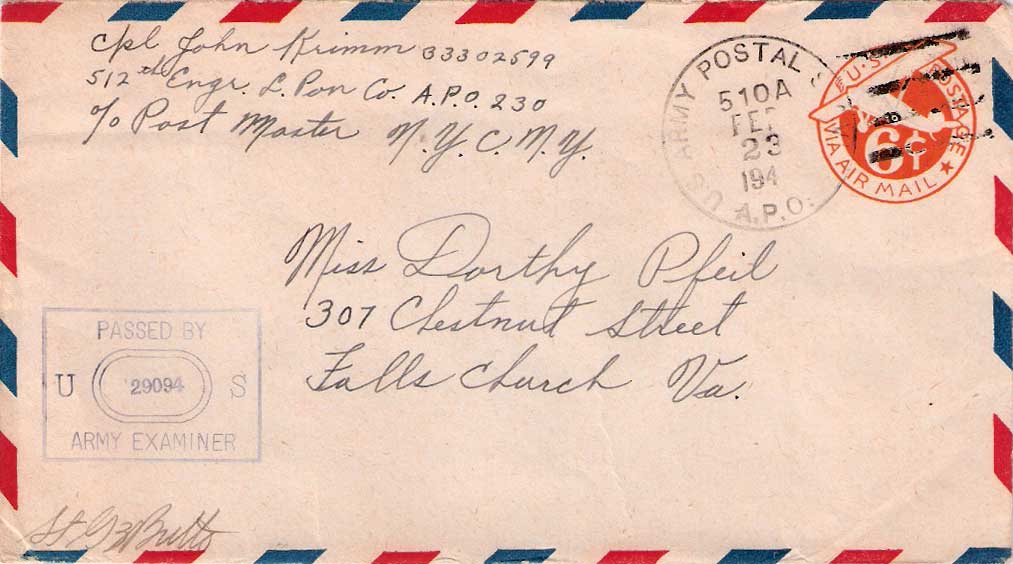 Cpl John Krimm 33302599
512th Engr. L. Pon Co. A.P.O. 230
c/o Post Master N.Y.C. N.Y.
U.S. ARMY POSTAL
510A
FEB
23
194
A.P.O.
U.S. POSTAGE
6¢
VIA AIR MAIL
Miss Dorthy Pfeil
307 Chestnut Street
Falls Church Va.
PASSED BY
U 29094 S
ARMY EXAMINER